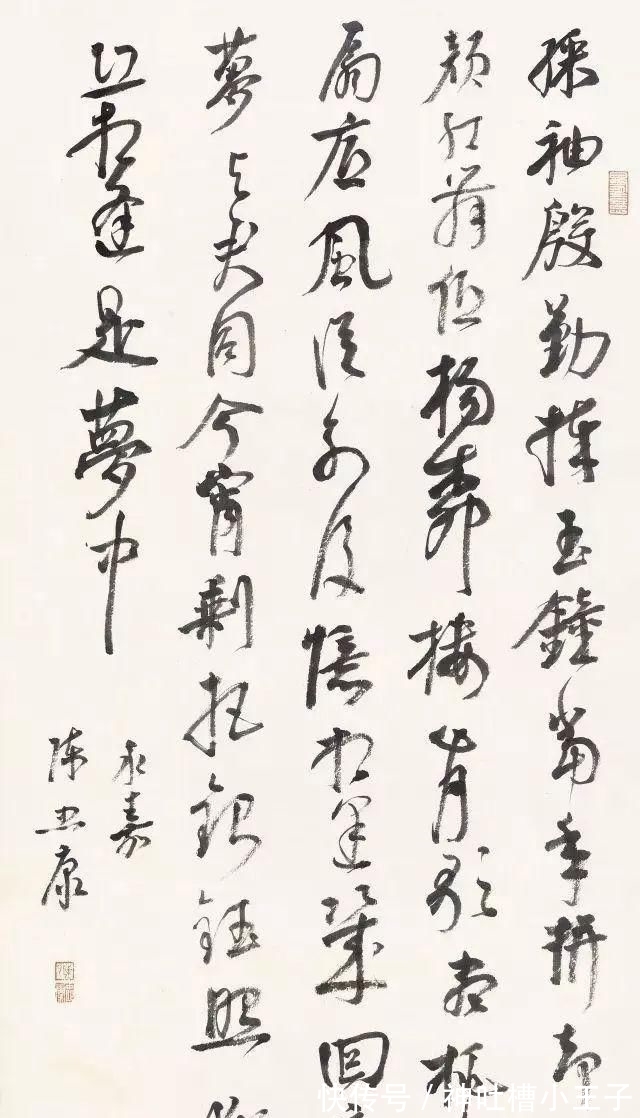 綵袖殷勤捧玉鐘當年拚却
顏紅舞低楊柳樓心月歌盡桃
扇底風從別後憶相逢幾回
夢與君同今宵剩把銀釭照
恐相逢是夢中
永嘉
陳忠康
快传号/神吐槽小王子